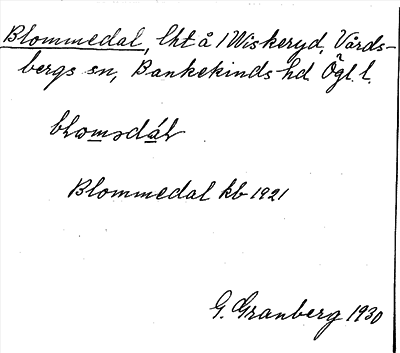 Blommedal, lht å 1 Wiskeryd, Vårds-
bergs sn, Bankekinds hd Ögl. l.
Blommedal kb 1921
G. Granberg 1930